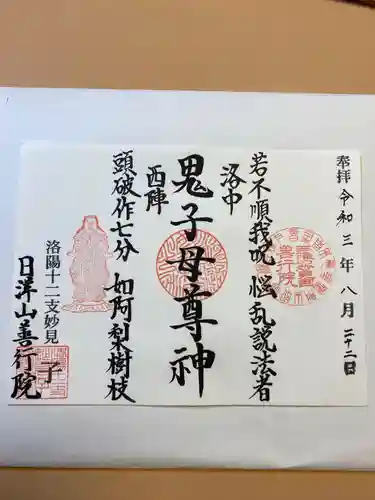 奉拝 令和三年八月二十二日
若不順我呪 悩乱説法者
洛中
鬼子母尊神
西陣
頭破作七分 如阿梨樹枝
洛陽十二支妙見
子
日洋山善行院